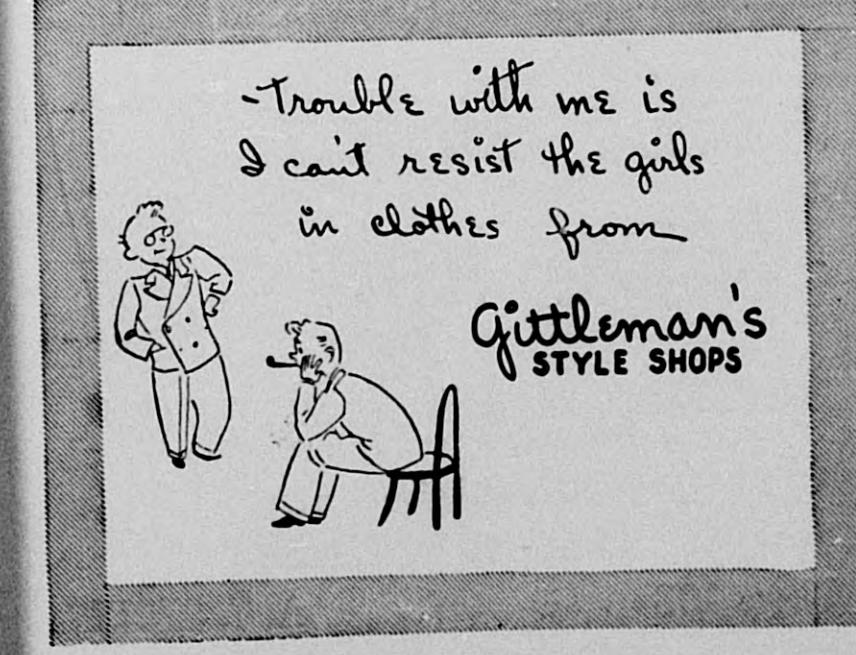 -Trouble with me is
I can't resist the girls
in clothes from
Gittleman's
STYLE SHOPS